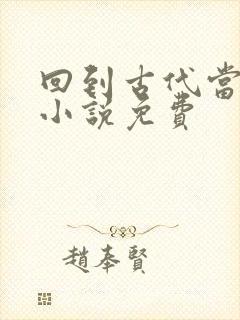 回到古代當
小說免費
趙奉賢